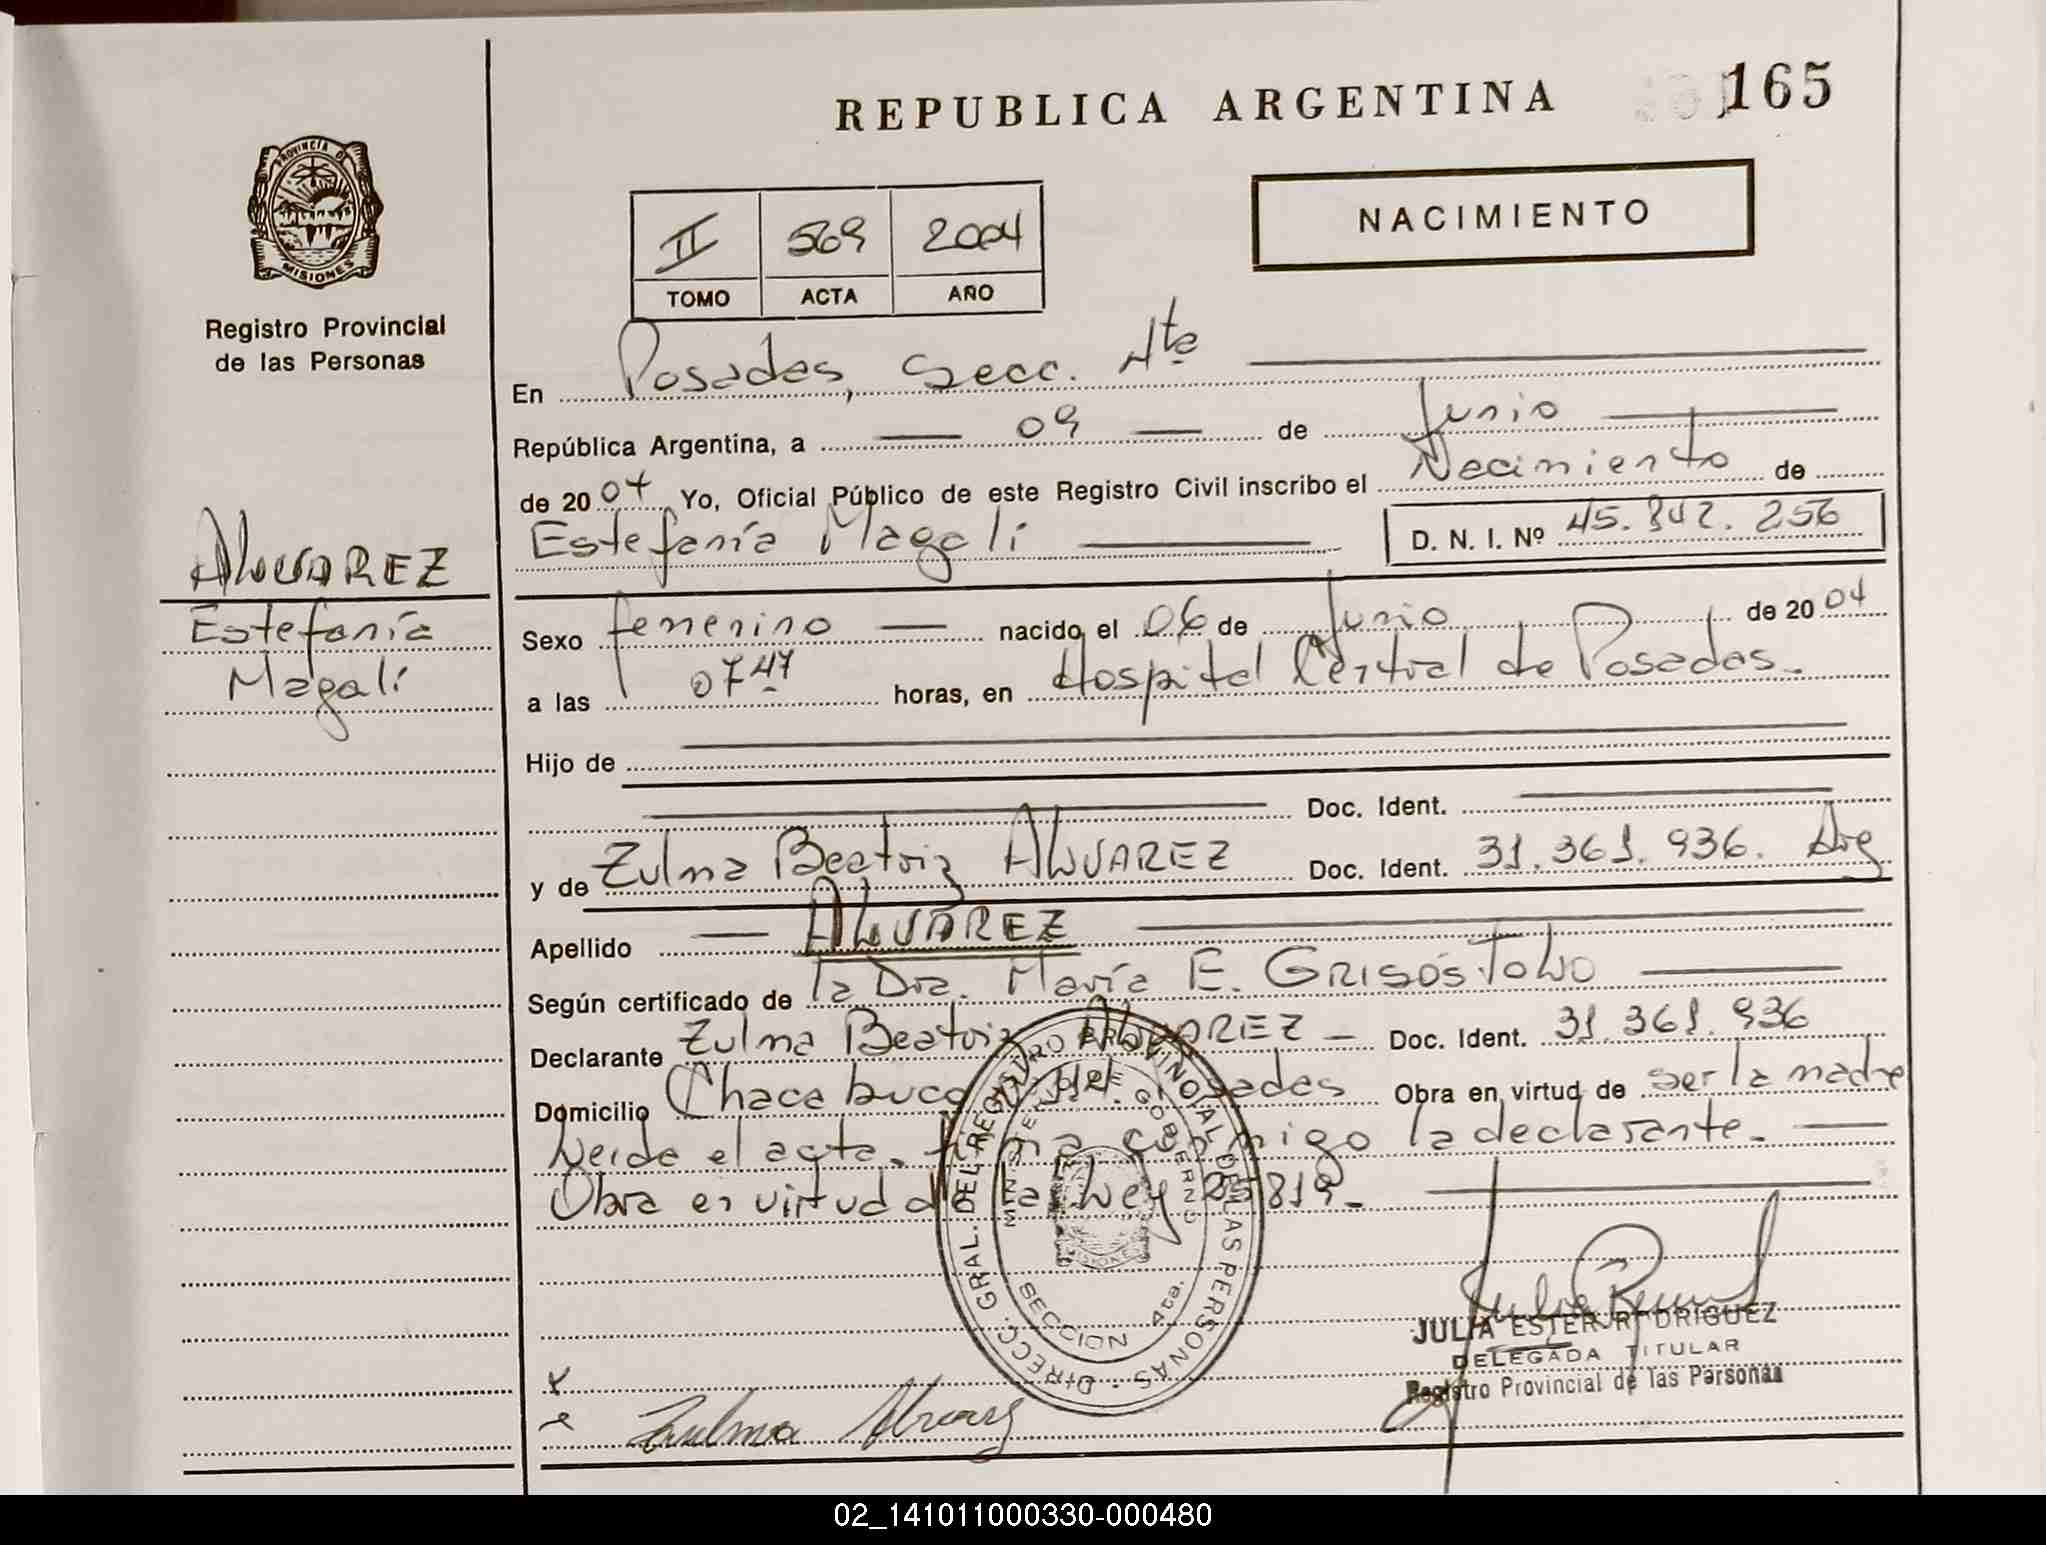 REPUBLICA ARGENTINA
165
PROVINCIA DE
MISIONES
Registro Provincial
de las Personas
NACIMIENTO
II 569 2004
TOMO ACTA AÑO
En Posadas, Secc. 4ta
República Argentina, a 09 de Junio
de 2004 Yo, Oficial Público de este Registro Civil inscribo el Nacimiento de
Estefanía Magali D. N. I. Nº 45.842.256
ALVAREZ
Estefanía
Magali
Sexo femenino nacido el 06 de Junio de 2004
a las 07 47 horas, en Hospital Central de Posadas.
Hijo de
Doc. Ident.
y de Zulma Beatriz ALVAREZ Doc. Ident. 31.361.936. Arg
Apellido ALVAREZ
Según certificado de la Dra. María E. GRISÓSTOLO
Declarante Zulma Beatriz ALVAREZ Doc. Ident. 31.361.936
Domicilio Chacabuco Posadas Obra en virtud de ser la madre
Leida el acta, firma conmigo la declarante.
Obra en virtud de La Ley 25819.
DIRECC. GRAL. DEL REGISTRO PROVINCIAL DE LAS PERSONAS
MINISTERIO DE GOBIERNO
SECCION 4ta.
JULIA ESTER RODRIGUEZ
DELEGADA TITULAR
Registro Provincial de las Personas
Zulma Alvarez
02_141011000330-000480